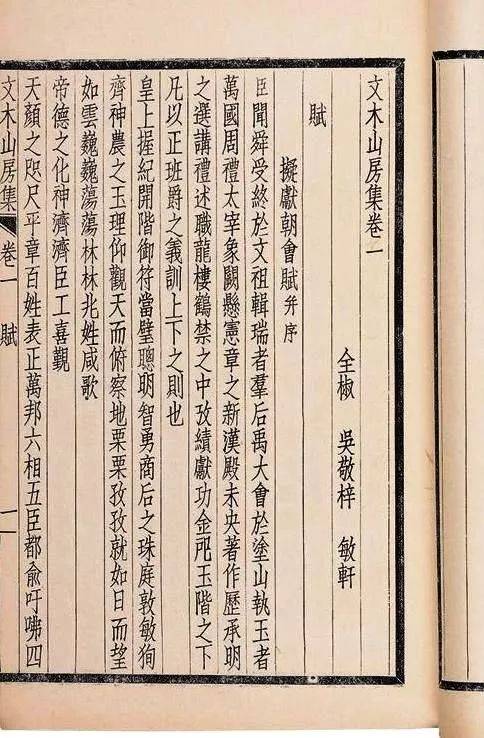 文木山房集卷一
全椒 吳敬梓 敏軒
賦
擬獻朝會賦 并序
臣聞舜受終於文祖輯瑞者羣后禹大會於塗山執玉者
萬國周禮太宰象闕懸憲章之新漢殿未央著作歷承明
之選講禮述職龍樓鶴禁之中攷績獻功金戺玉階之下
凡以正班爵之義訓上下之則也
皇上握紀開階御符當璧聰明智勇商后之珠庭敦敏徇
齊神農之玉理仰觀天而俯察地栗栗孜孜就如日而望
如雲巍巍蕩蕩林林兆姓咸歌
帝德之化神濟濟臣工喜覲
天顏之咫尺平章百姓表正萬邦六相五臣都俞吁咈四
文木山房集 卷一 賦 一